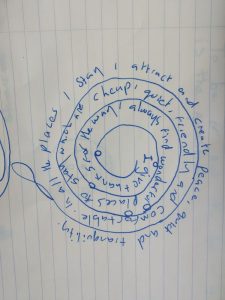 I give thanks for the way I always find wonderful
places to stay which are cheap, quiet, friendly and comfortable
in all the places I stay I attract and create peace, quiet and tranquility.